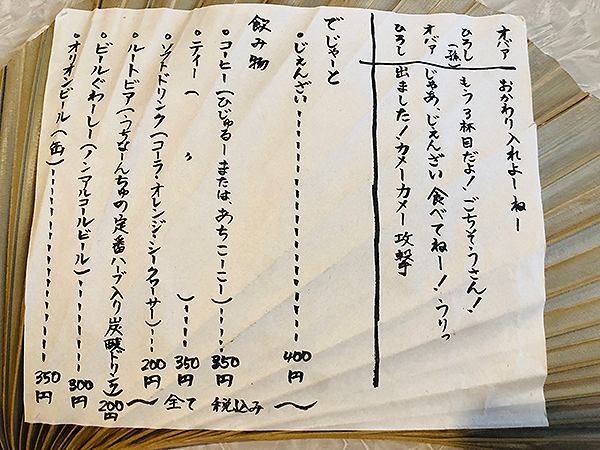 オバァ おかわり入れよーねー
ひろし(孫) もう3杯目だよ!ごちそうさん!
オバァ じゃあ、じぇんざい食べてねー!うりっ
ひろし 出ました!カメーカメー攻撃
でじゃーと
・じぇんざい 400円
飲み物
・コーヒー(ひじゅるーまたは、あちこーこー) 350円
・ティー( 〃 ) 350円
・ソフトドリンク(コーラ・オレンジ・シークヮーサー) 200円
・ルートビア(うちなーんちゅの定番ハーブ入り炭酸ドリンク) 200円
・ビールぐゎーしー(ノンアルコールビール) 300円
・オリオンビール(缶) 350円
〜全て税込み〜